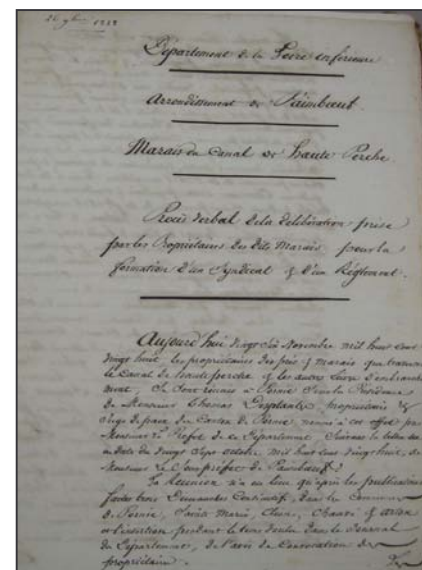 26 9bre 1828
Département de la Loire inférieure
Arrondissement de Paimboeuf.
Marais du Canal de haute Perche.
Procès verbal de la délibération prise
par les Propriétaires des dits Marais pour la
formation d'un Syndicat & d'un Réglement.
Aujourd'hui vingt six Novembre mil huit cent
vingt huit, les propriétaires des prés & marais que traverse
le Canal de haute perche & les autres
se sont réunis à Pornic sous la Présidence
de Monsieur Thomas propriétaire &
Juge de paix du Canton de Pornic nommé à cet effet par
Monsieur le Préfet de ce Département suivant la lettre
en date du vingt sept octobre mil huit cent vingt huit, de
Monsieur le Sous préfet de Paimboeuf.
La Réunion n'a eu lieu qu'après les publications
faites trois Dimanches Consécutifs, dans les Communes
de Pornic, Sainte Marie, Chauvé & arthon
et l'insertion pendant le tems voulu dans le Journal
du Département, de l'avis de Convocation des
propriétaires.